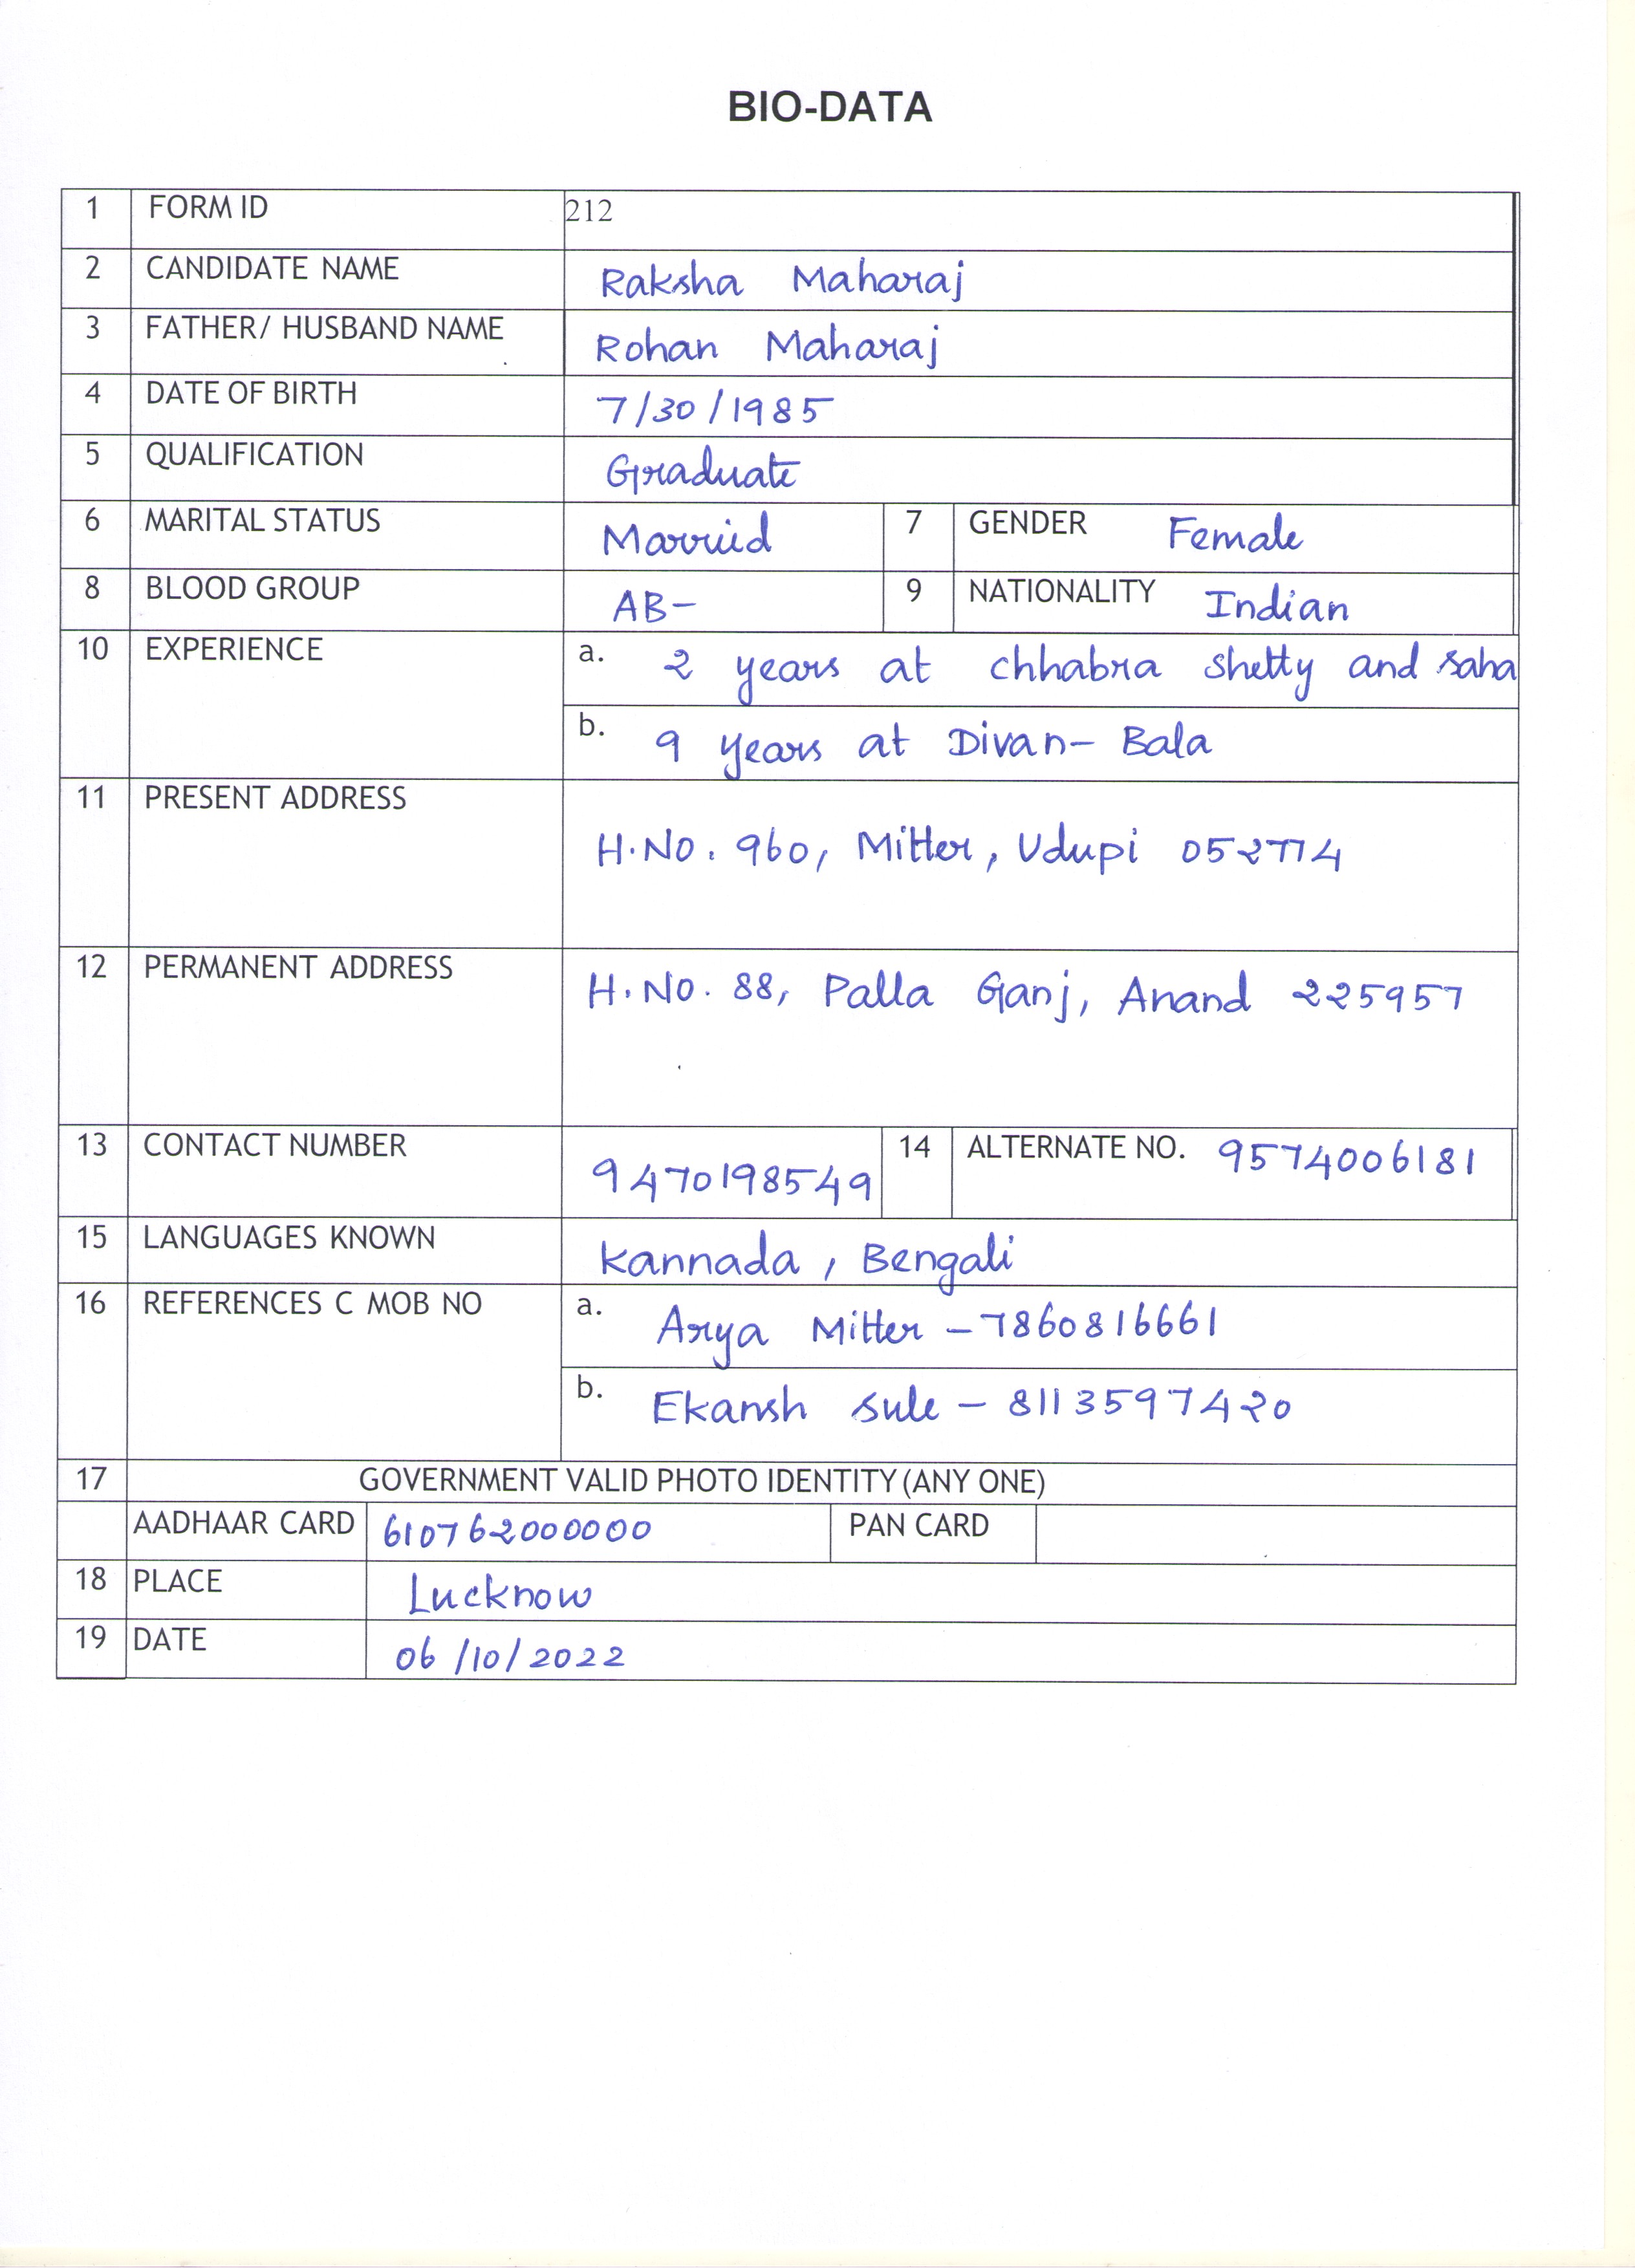 BIO-DATA
1 FORM ID 212
2 CANDIDATE NAME Raksha Maharaj
3 FATHER/ HUSBAND NAME Rohan Maharaj
4 DATE OF BIRTH 7/30/1985
5 QUALIFICATION Graduate
6 MARITAL STATUS Married 7 GENDER Female
8 BLOOD GROUP AB- 9 NATIONALITY Indian
10 EXPERIENCE a. 2 years at chhabra shetty and saha
b. 9 years at Divan- Bala
11 PRESENT ADDRESS
H.No. 960, Mitter, Udupi 052774
12 PERMANENT ADDRESS H.No. 88, Palla Ganj, Anand 225957
13 CONTACT NUMBER 9470198549 14 ALTERNATE NO. 9574006181
15 LANGUAGES KNOWN Kannada, Bengali
16 REFERENCES C MOB NO a. Arya Mitter - 7860816661
b. Ekansh Sule - 8113597420
17 GOVERNMENT VALID PHOTO IDENTITY (ANY ONE)
AADHAAR CARD 610762000000 PAN CARD
18 PLACE Lucknow
19 DATE 06/10/2022